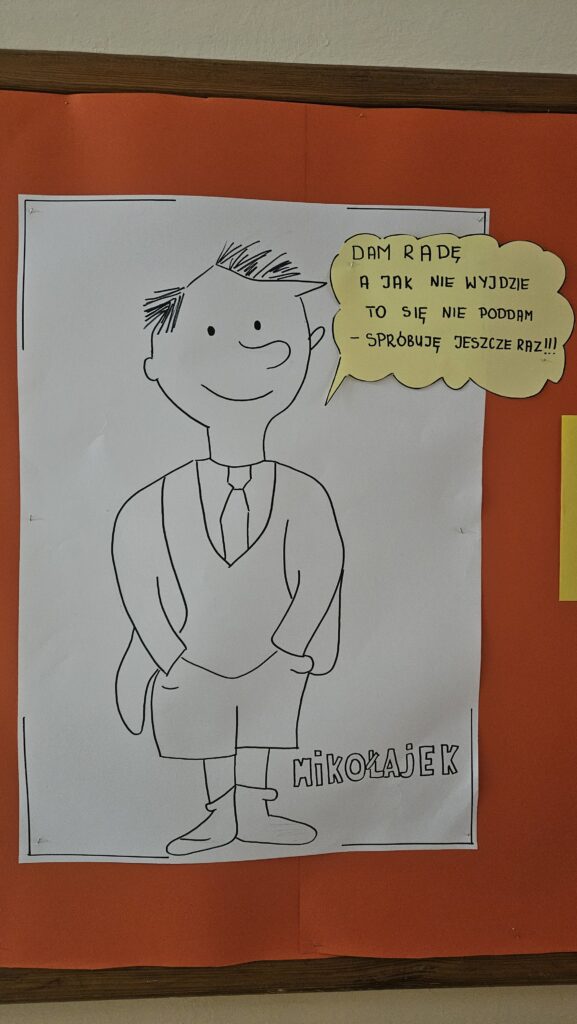 DAM RADĘ
A JAK NIE WYJDZIE
TO SIĘ NIE PODDAM
– SPRÓBUJĘ JESZCZE RAZ!!!
MiKOŁAJEK